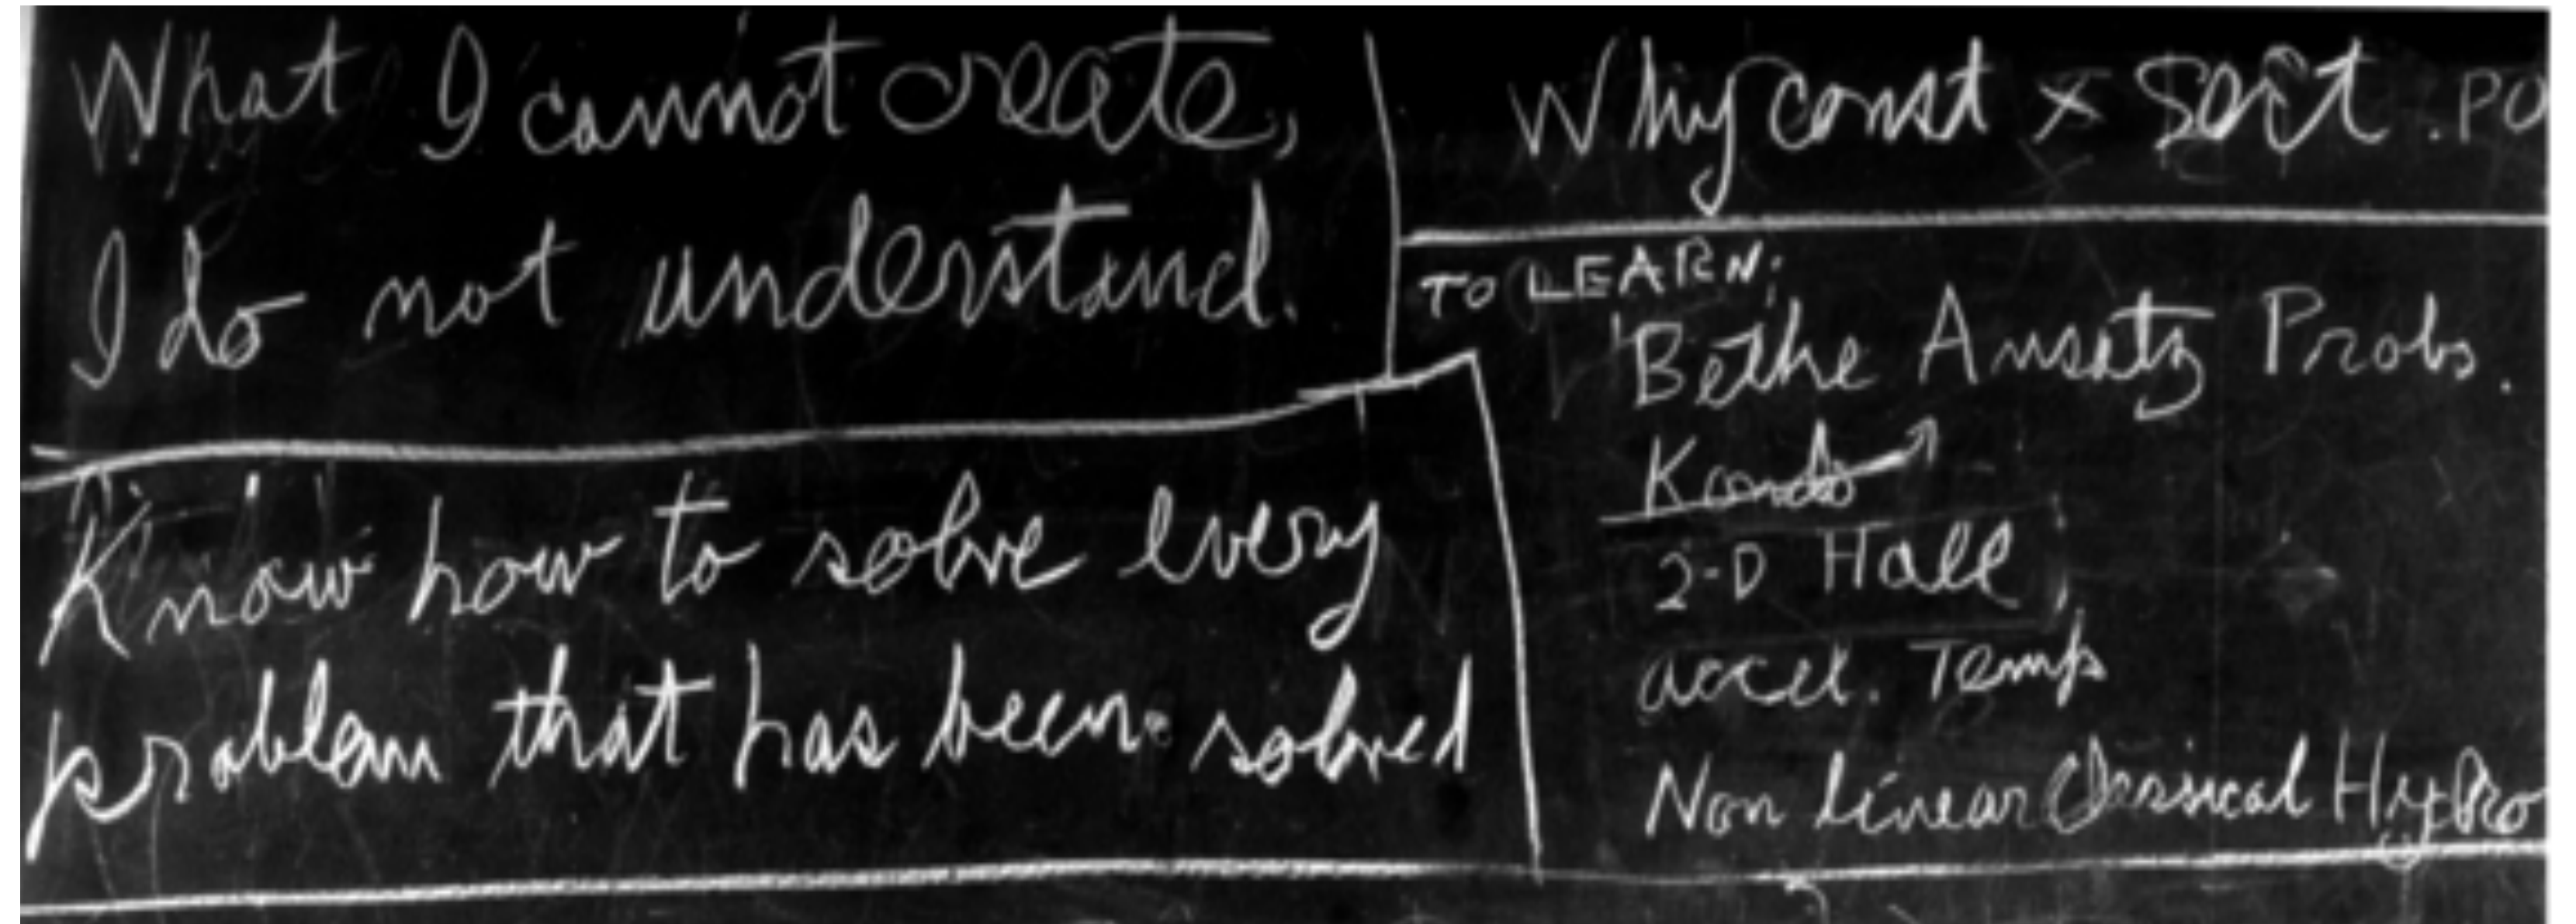 What I cannot create,
I do not understand.
Know how to solve every
problem that has been solved
Why const × sect . PO
TO LEARN:
Bethe Ansatz Probs.
Kondo
2-D Hall
accel. Temp
Non linear Classical Hydro